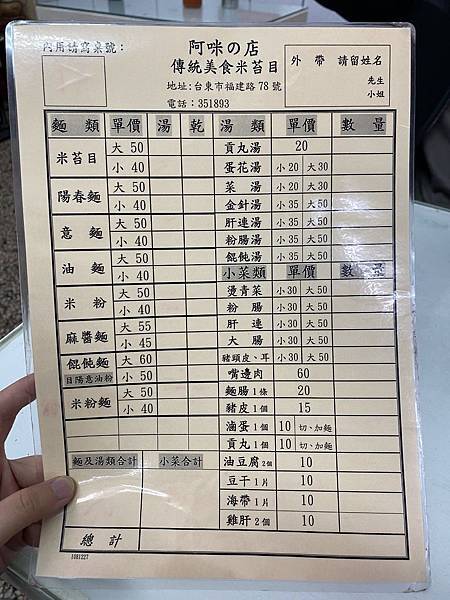 內用請寫桌號：
阿咪の店
傳統美食米苔目
地址:台東市福建路 78 號
電話：351893
外 帶 請留姓名
先生
小姐
麵 類 單價 湯 乾 湯 類 單價 數 量
米苔目 大 50 貢丸湯 20
小 40 蛋花湯 小20 大30
陽春麵 大 50 菜 湯 小20 大30
小 40 金針湯 小35 大50
意 麵 大 50 肝連湯 小35 大50
小 40 粉腸湯 小35 大50
油 麵 大 50 餛飩湯 小35 大50
小 40 小菜類 單價 數 量
米 粉 大 50 燙青菜 小30 大50
小 40 粉 腸 小30 大50
麻醬麵 大 55 肝 連 小30 大50
小 45 大 腸 小30 大50
餛飩麵 大 60 豬頭皮、耳 小30 大50
目陽意油粉 小 50 嘴邊肉 60
米粉麵 大 50 麵腸1條 20
小 40 豬皮1個 15
滷蛋1個 10 切、加麵
貢丸1個 10 切、加麵
麵及湯類合計 小菜合計 油豆腐2個 10
豆干1片 10
海帶1片 10
雞肝2個 10
總 計
1081227